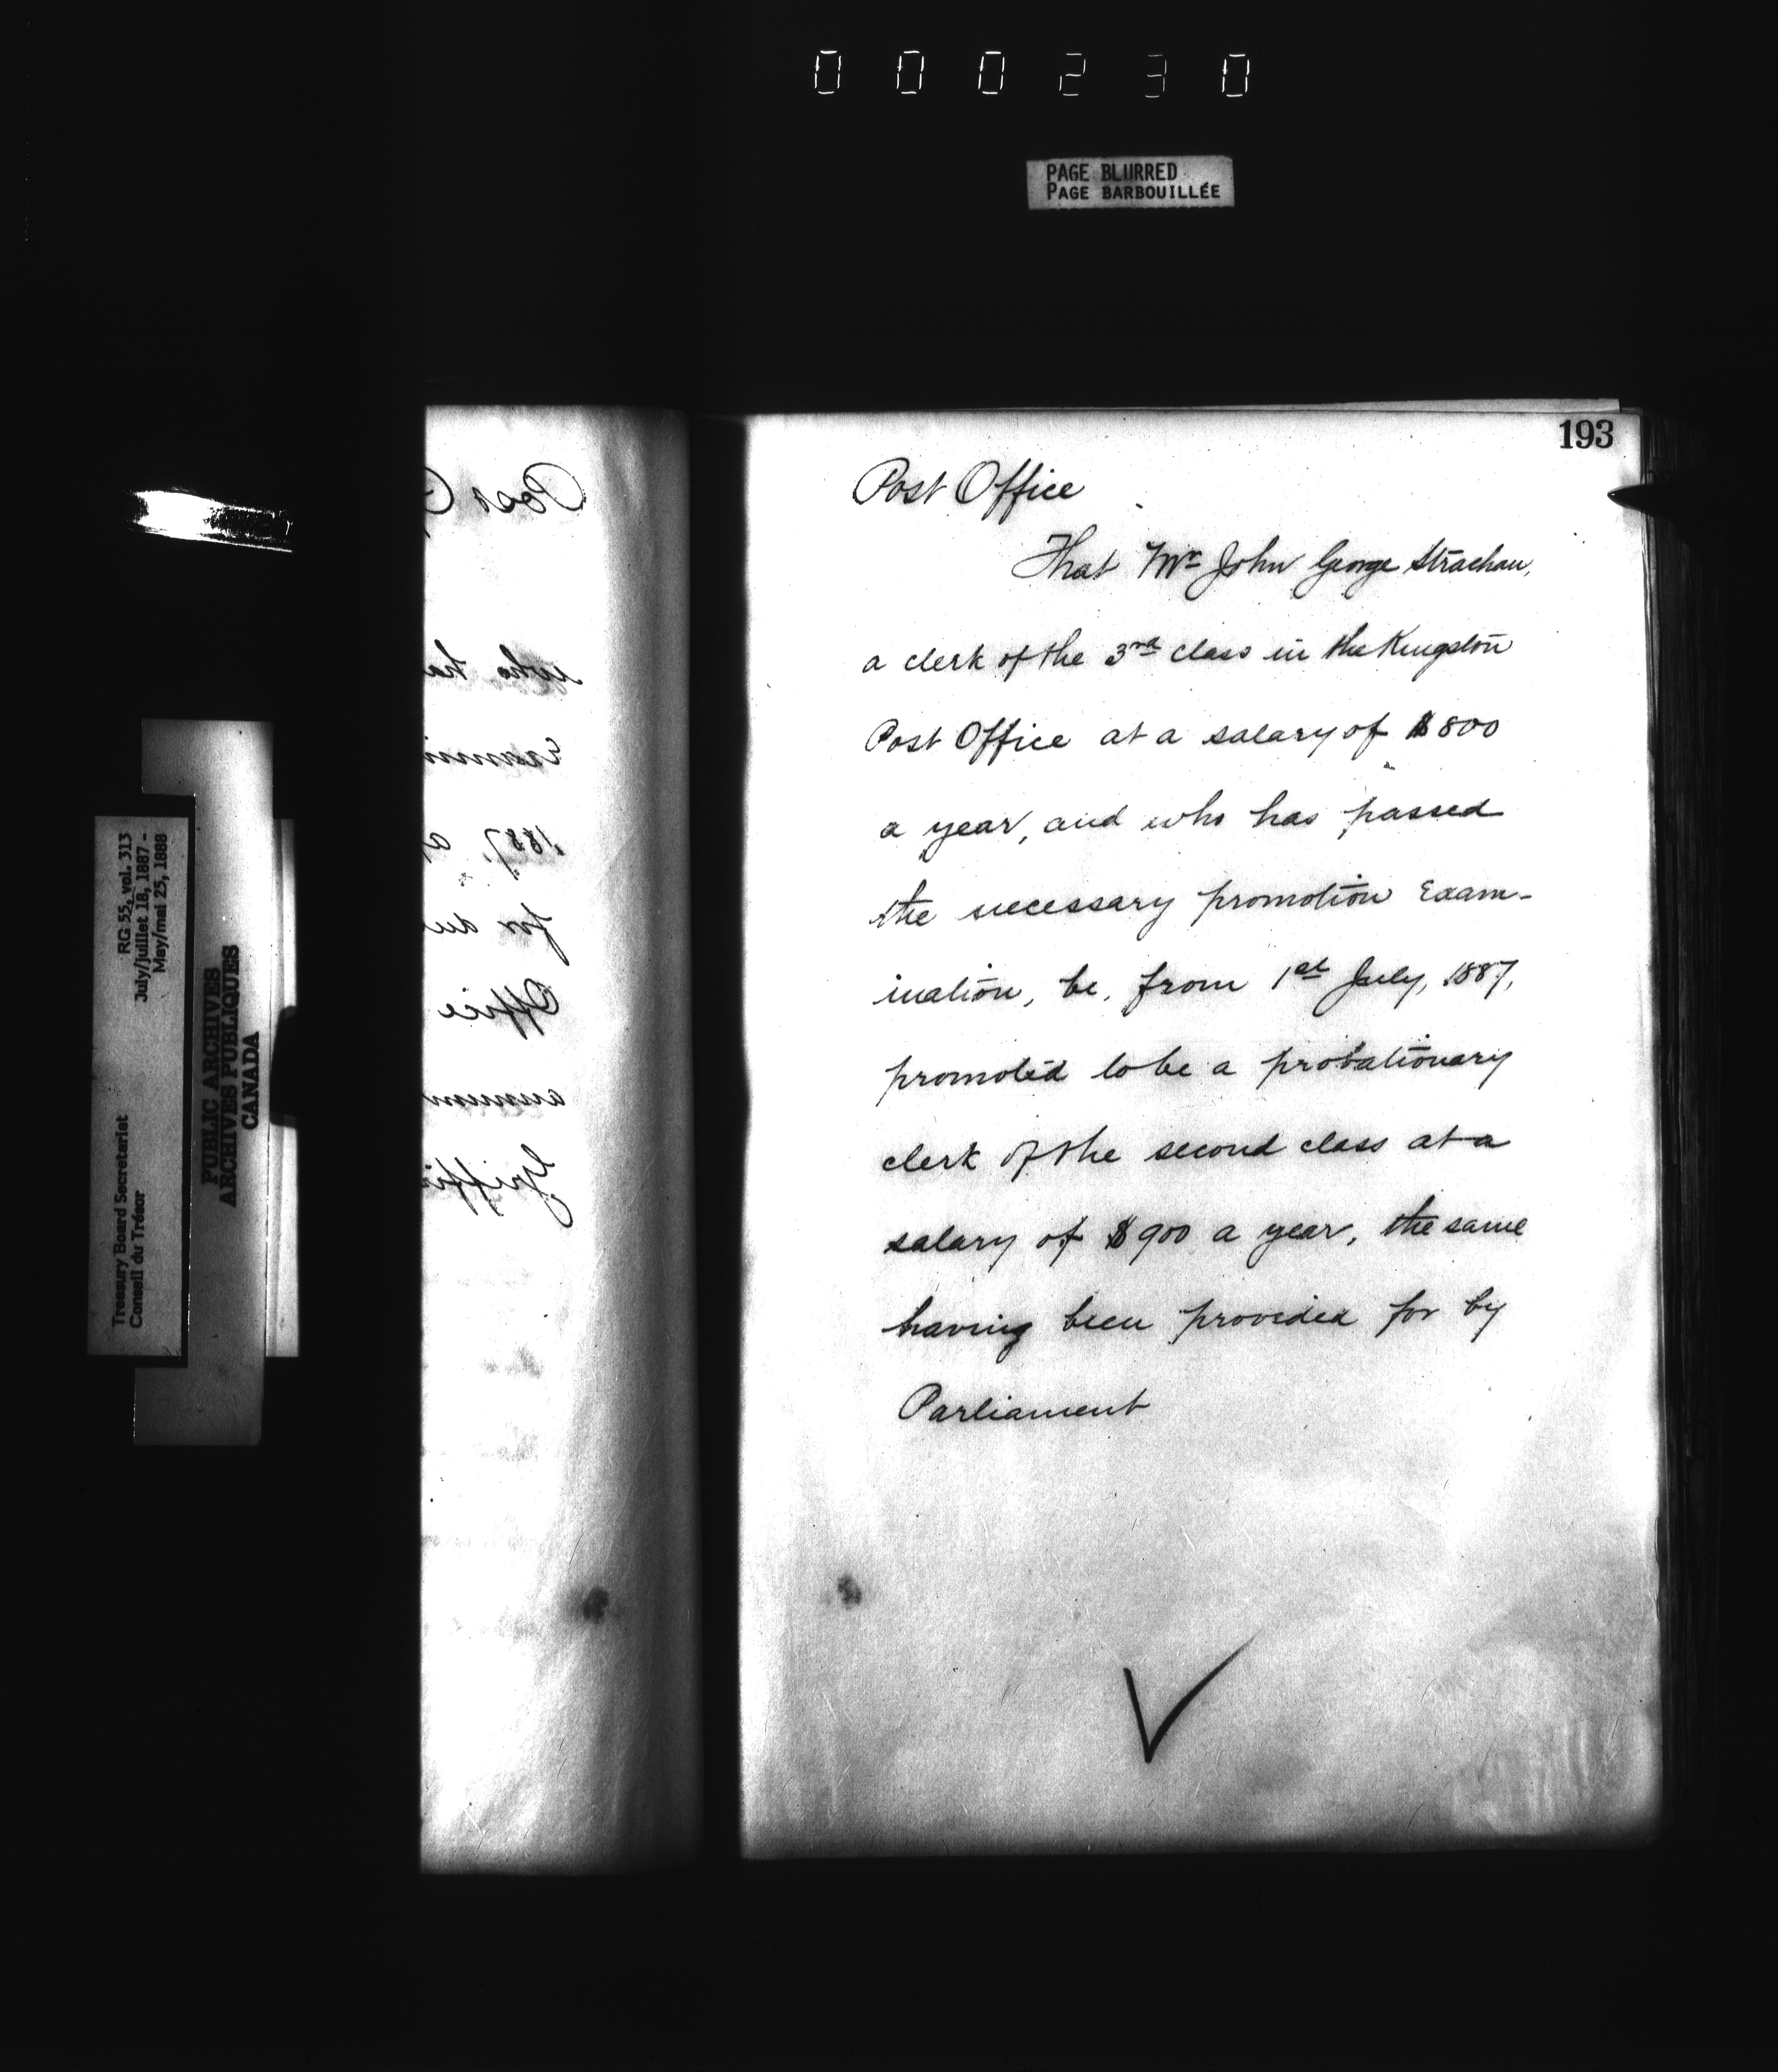 000230
PAGE BLURRED
PAGE BARBOUILLÉE
193
Post Office
That Mr John George Strachan,
a clerk of the 3rd class in the Kingston
Post Office at a salary of $800
a year, and who has passed
the necessary promotion Exam-
ination, be, from 1st July, 1887,
promoted to be a probationary
clerk of the second class at a
salary of $900 a year, the same
having been provided for by
Parliament
Post
who ha
Examin
1887, a
for du
Office
annum
Griffi
Treasury Board Secretariat RG 55, vol. 313
Conseil du Trésor July/juillet 18, 1887 -
May/mai 25, 1888
PUBLIC ARCHIVES
ARCHIVES PUBLIQUES
CANADA